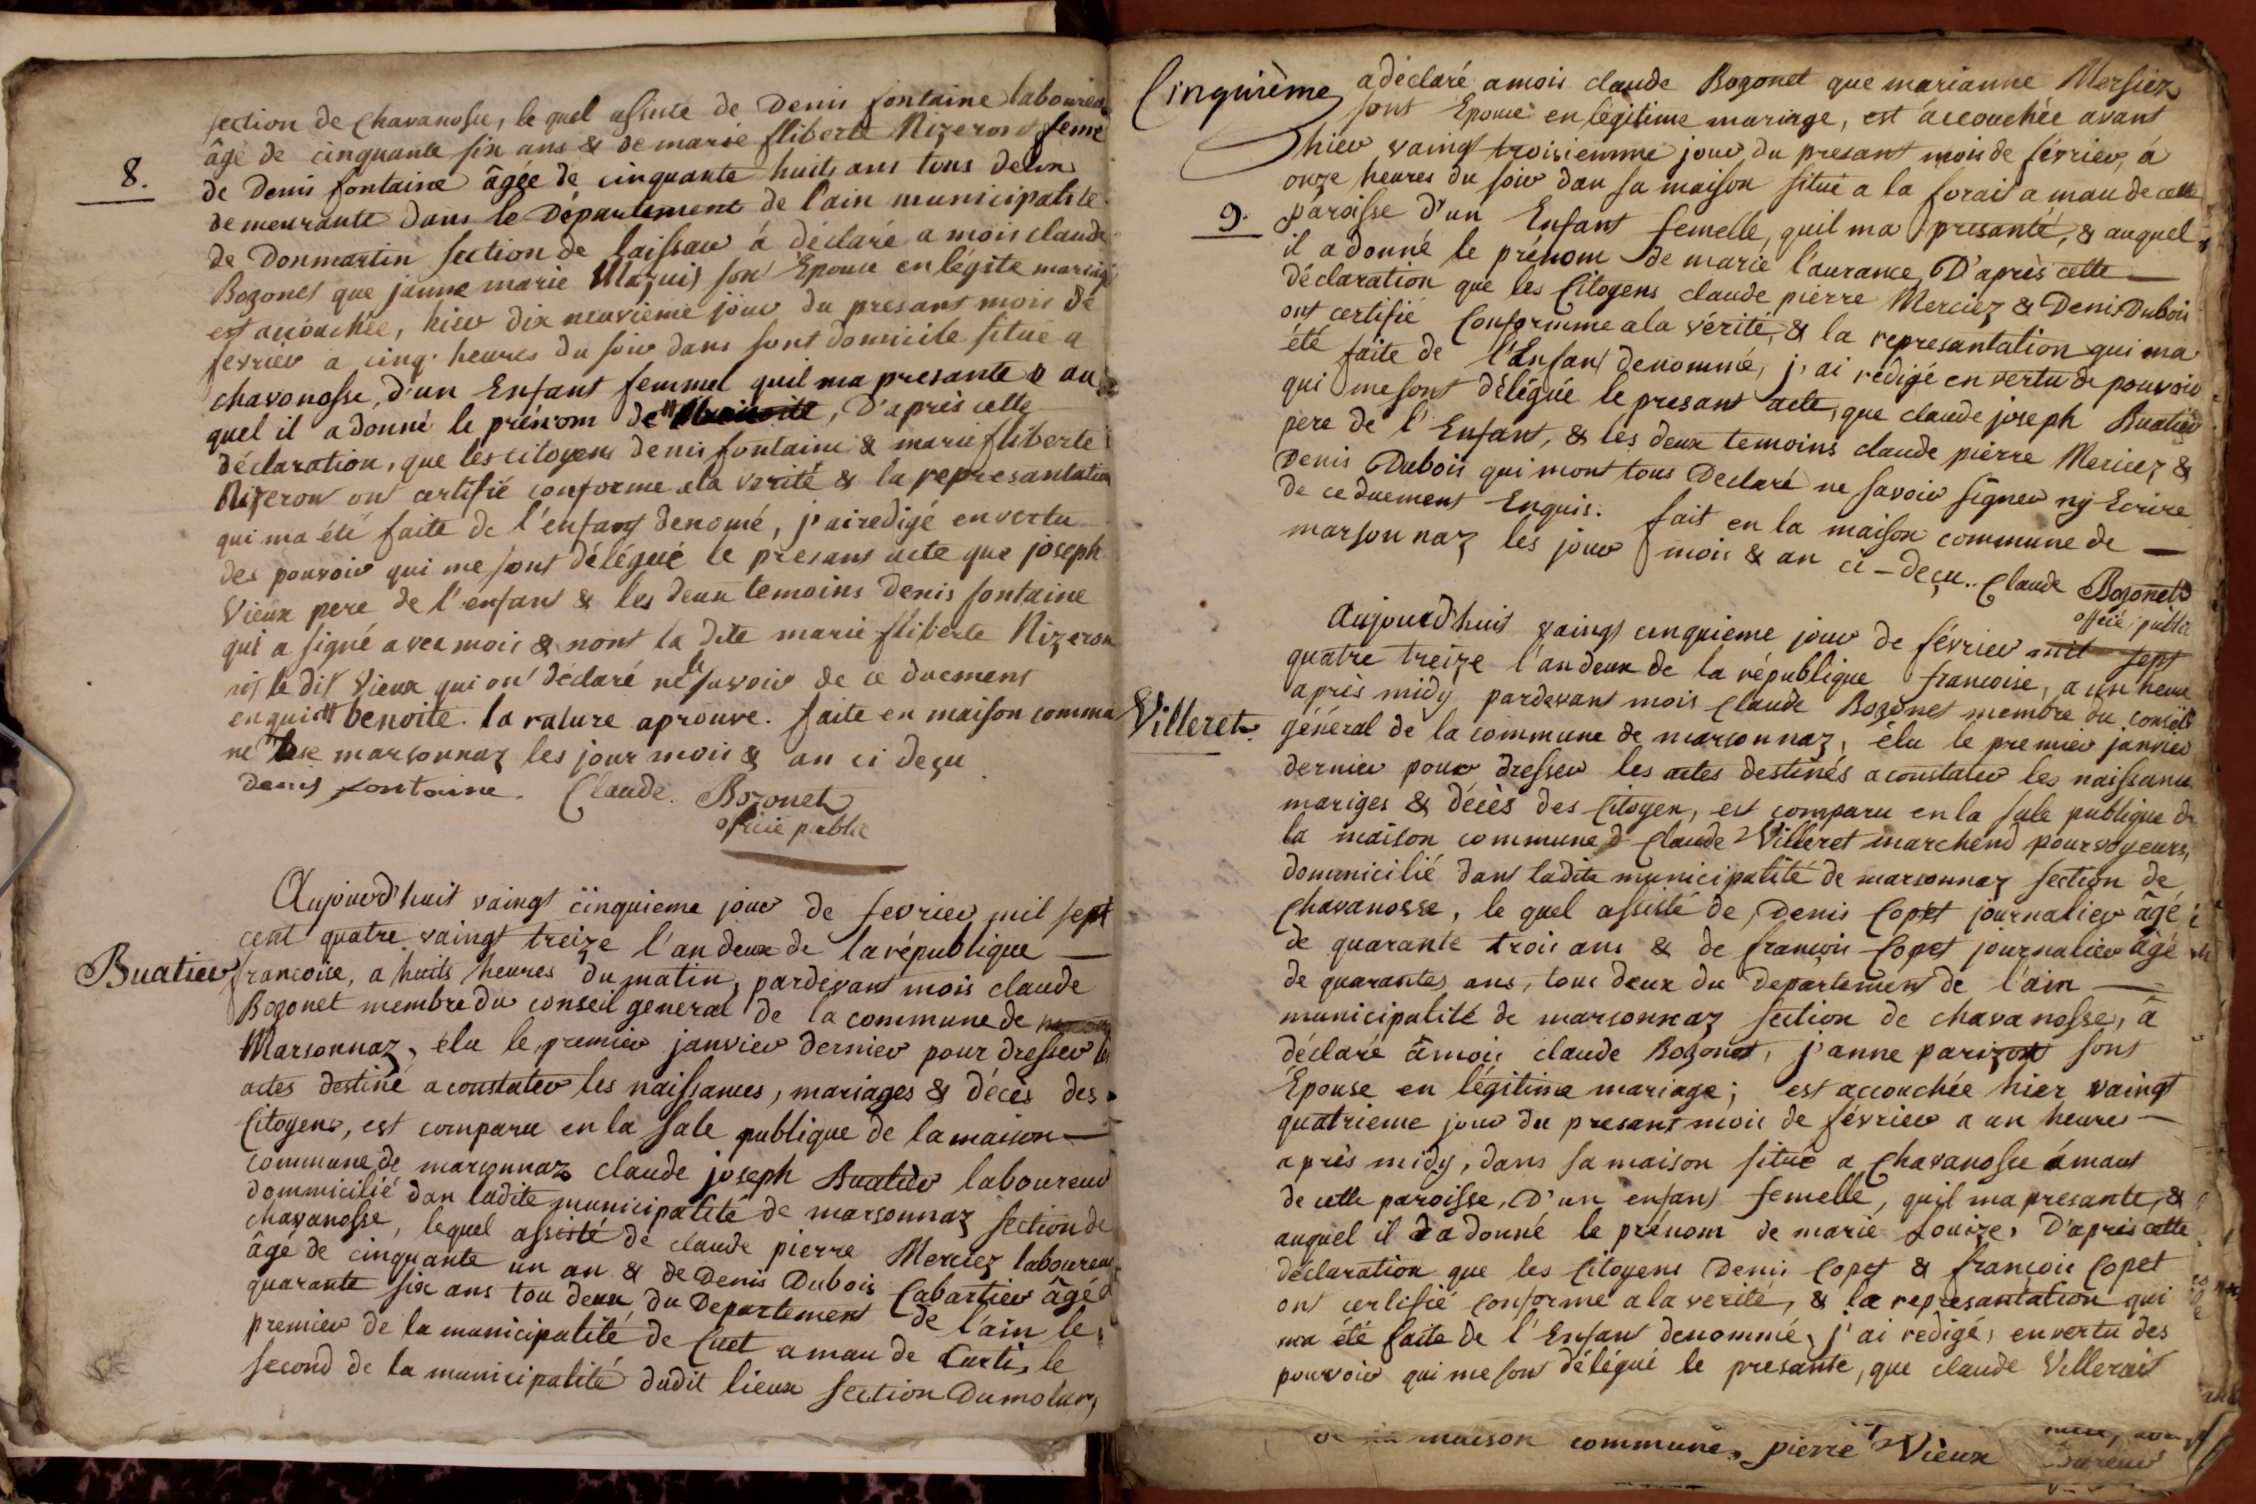 section de chavanosse, le quel assisté de Denis fontaine laboureur
âgé de cinquante six ans & de marie fliberte Nizeron feme
8.
de Denis fontaine âgée de cinquante huits ans tous deux
demeurante dans le Département de l'ain municipalité
de Donmartin section de laissau à déclaré a mois claude
Bozonet que janne marie Mazuis son Epouse en légite mariage
est accouchée, hier dix neuvieme jour du presant mois de
fevrier a cinq heures du soir dans sont domicile situé a
chavonosse, d'un Enfant femmel quil ma presante & au
quel il a donné le prénom de , D'après cette
déclaration, que les citoyens denis fontaine & marie fliberte
Nizeron on certifié conforme a la vérité & la represantation
qui ma été faite de l'enfant denomé, j'ai redigé en vertu
des pouvoir qui me sont délégué le presans acte que joseph
Vieux pere de l'enfant & les deux temoins denis fontaine
qui a signé avec mois & nont la dite marie fliberte Nizeron
nis le dit Vieux qui on déclaré ne le savoir de ce duement
enquis benoite. la rature aprouve. faite en maison commu
ne de marsonnaz les jour mois & an ci deçu
denis fontaine. Claude. Bozonet
officié public
Aujourd'huit vaingt cinquieme jour de fevrier mil sept
cent quatre vaingt treize l'an deux de la république
Buatier
francoise, a huits heures du matin, pardevant mois claude
Bozonet membre du conseil general de la commune de
Marsonnaz, élu le premier janvier dernier pour dresser les
actes destiné a constater les naissances, mariages & décès des
Citoyens, est comparu en la sale publique de la maison
commune de marsonnaz claude joseph Buatier laboureur
dommicilié dan ladite municipalité de marsonnaz section de
chavanosse, lequel assisté de claude pierre Merciez laboureur
âgé de cinquante un an & de Denis Dubois Cabartier âgé d
quarante six ans tou deux du Departement de l'ain le
premier de la municipalité de Cuet a mau de Curti, le
second de la municipalité dudit lieux section Dumolar,
Cinquième
a déclaré a mois claude Bozonet que marianne Mersiez
sont Epouse en légitime mariage, est accouchée avant
hier vaingt troisiemme jour du presant mois de février, à
onze heures du soir dan sa maison situé a la forait a mau de cette
9.
paroisse d'un Enfant femelle, quil ma presanté, & auquel
il a donné le prénom de marie l'aurance, D'après cette
déclaration que les Citoyens claude pierre Merciez & Denis Dubois
ont certifié Conformme a la vérité, & la represantation qui ma
été faite de l'Enfant denommé, j'ai redigé en vertu de pouvoir
qui me sont délégué le presant acte, que claude joseph Buatier
pere de l'Enfant, & les deux temoins claude pierre Merciez &
Denis Dubois qui mont tous Declaré ne savoir signer ny Ecrire
de ce duement Enquis. fait en la maison commune de
marsonnaz les jour mois & an ci-deçu. Claude Bozonet
officié public
Aujourd'huit vaingt cinquieme jour de février mil sept
quatre treize l'an deux de la république francoise, a un heure
après midy pardevant mois claude Bozonet membre du conseil
Villeret.
général de la commune de marsonnaz, élu le premier janvier
dernier pour dresser les actes destinés a constater les naissance
mariges & décès des Citoyen, est comparu en la sale publique de
la maison commune d Claude Villeret marchend pourvoyeurs,
dommicilié dans ladite municipalité de marsonnaz section de
Chavanosse, le quel assisté de Denis Copet journalier âgé
de quarante trois ans & de francois Copet journalier âgé
de quarantes ans, tous deux du departement de l'ain
municipalité de marsonnaz section de chavanosse, à
déclaré âmois claude Bozonet, j'anne parizot sont
Epouse en légitime mariage; est accouchée hier vaingt
quatrieme jour du presant mois de février a un heures
après midy, dans sa maison situé a Chavanosse âmaut
de cette paroisse, D'un enfant femelle, quil ma presante, &
auquel il a donné le prénom de marie Louize, D'après cette
déclaration que les Citoyens Denis Copet & francois Copet
ont certifié conforme a la verité, & la represantation qui
ma été faite de l'Enfant denommé, j'ai redigé, en vertu des
pouvoir qui me son délégué le presante, que claude Villerait
maison commune, pierre Vieux